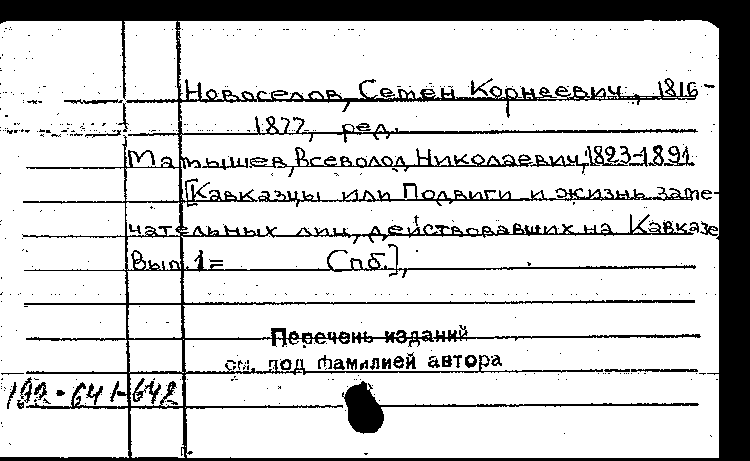 Новоселов, Семен Корнеевич, 1816-
1877, ред.
Матышев, Всеволод Николаевич, 1823-1891
[Кавказцы или Подвиги и жизнь заме-
чательных лиц, действовавших на Кавказе
Вып. 1= Спб.],
Перечень изданий
см. под фамилией автора
192-641-642